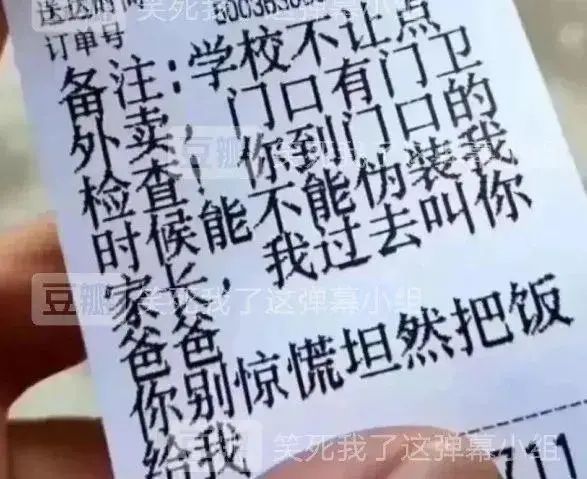 订单号
备注:学校不让点
外卖，门口有门卫
检查！你到门口的
时候能不能伪装我
家长，我过去叫你
爸爸
你别惊慌坦然把饭
给我
711
豆瓣
笑死我了这弹幕小组
豆瓣
笑死我了这弹幕小组
豆瓣
笑死我了这弹幕小组